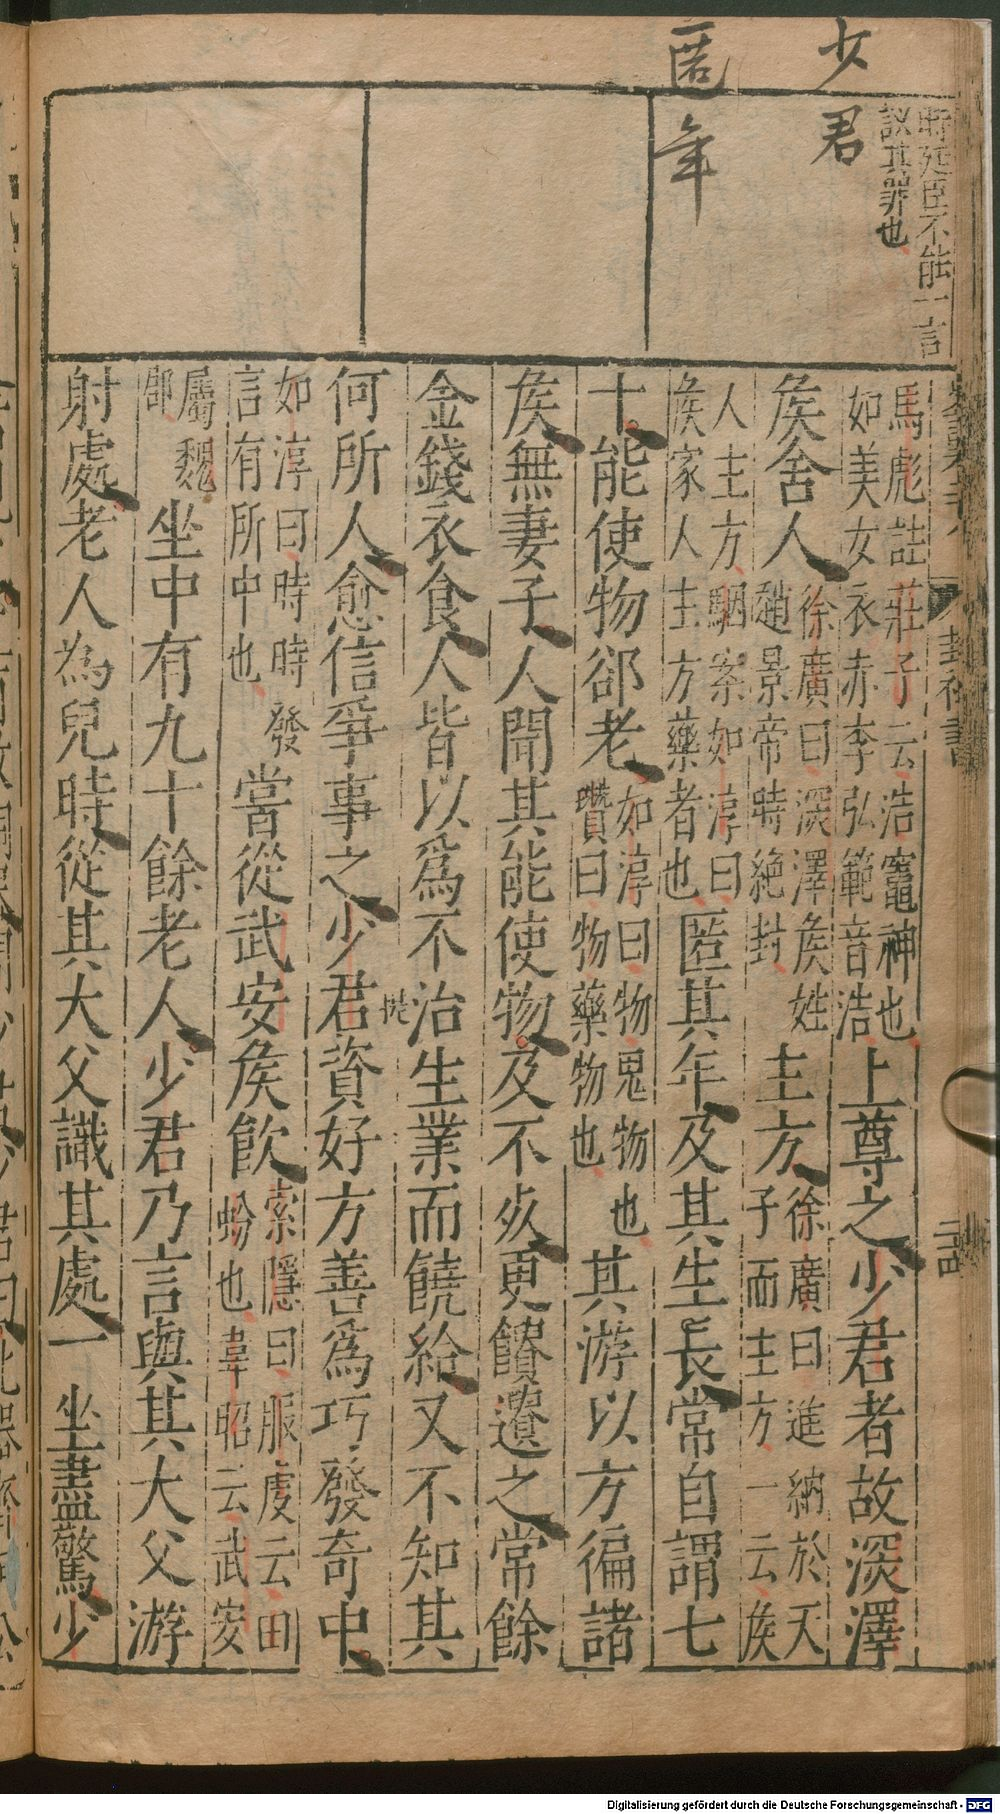 少君
匿年
時廷臣不能一言
詆其罪也
馬彪註莊子云浩竈神也
如美女衣赤李弘範音浩
上尊之少君者故深澤
矦舍人
徐廣曰深澤矦姓
趙景帝時絶封
主方
徐廣曰進納於天
子而主方一云矦
人主方駰案如淳曰
矦家人主方藥者也
匿其年及其生長常自謂七
十能使物郤老
如淳曰物鬼物也
瓚曰物藥物也
其游以方徧諸
矦無妻子人聞其能使物及不死更饋遺之常餘
金錢衣食人皆以爲不治生業而饒給又不知其
何所人愈信爭事之少君資好方善爲巧發奇中
如淳曰時時發
言有所中也
嘗從武安矦飮
索隱曰服虔云田
蚡也韋昭云武安
屬魏
郡
坐中有九十餘老人少君乃言與其大父游
射處老人為兒時從其大父識其處一坐盡驚少
封禪書
Digitalisierung gefördert durch die Deutsche Forschungsgemeinschaft - DFG